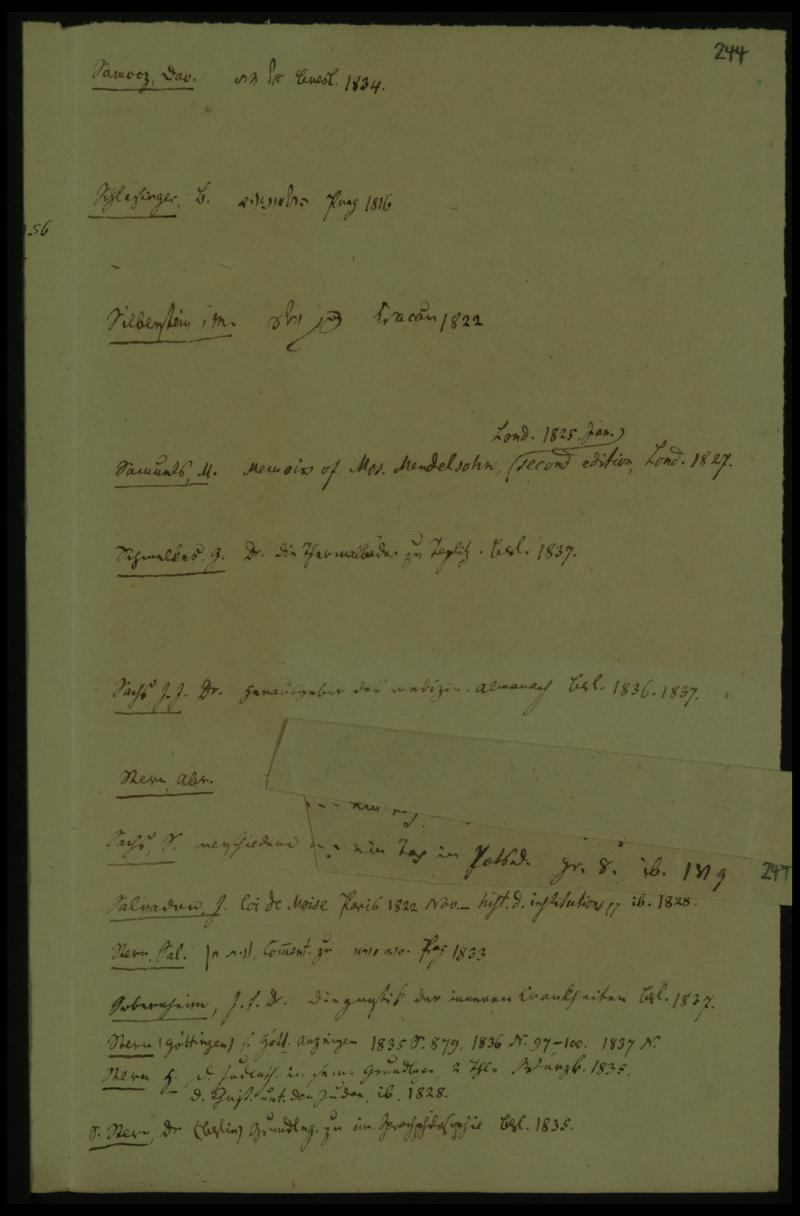 244
Samocz, Dav. Bresl. 1834.
Schlesinger, B. Prag 1816
156
Silberstein, M. Cracau 1822
Lond. 1825. Jan.)
Samuels, M. Memoirs of Mos. Mendelsohn, (second edition, Lond. 1827.
Schmelkes, G. Dr. die Thermalbäder zu Teplitz. Berl. 1837.
Sachs, J. J. Dr. Herausgeber des medizin. Almanach Berl. 1836. 1837.
Stern, Abr.
Sachs, S. verschiedene ein Tag in Potsd. gr. 8. ib. 1819
247
Salvador, J. loi de Moise Paris 1822 Nov. – hist. d. institutions ib. 1828.
Stern, Sal. Coment. zu Prag 1833
Sobernheim, J. F. Dr. Diagnostik der inneren Krankheiten Berl. 1837.
Stern (Göttingen) s. Gött. Anzeigen 1835 S. 879, 1836 N. 97–100. 1837 N.
Stern H. d. Judenth. in sein. Grundlage, 2 Thle. Würzb. 1835.
d. Christ. unt. den Juden, ib. 1828.
S. Stern, Dr (Berlin) Grundleg. zu ein. Sprachphilosophie Berl. 1835.